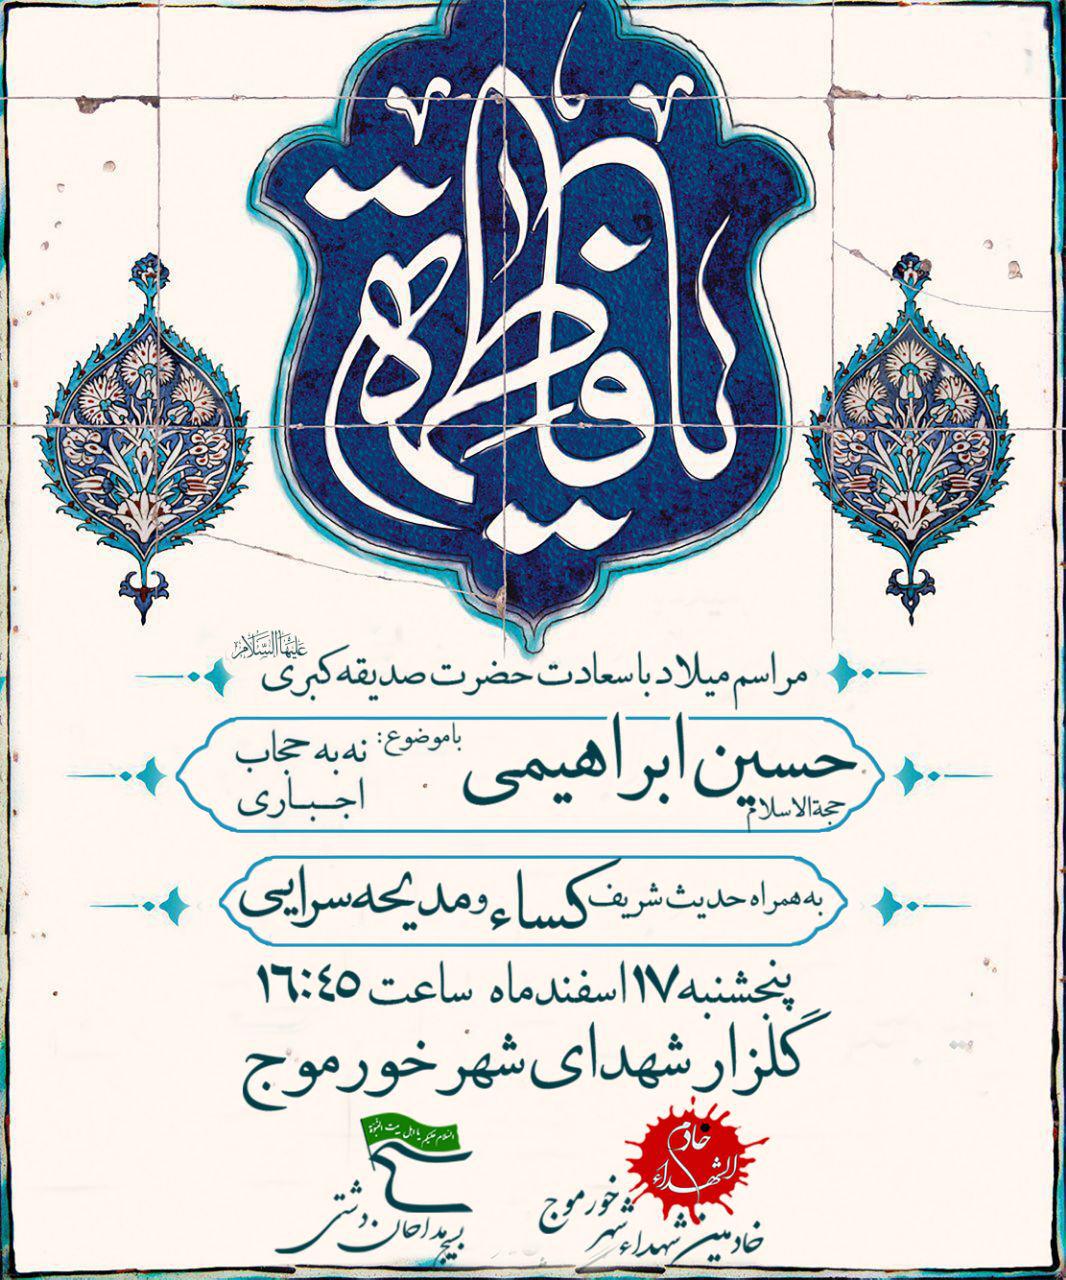 یا فاطمة
مراسم میلاد با سعادت حضرت صدیقه کبری علیها السلام
حجة الاسلام حسین ابراهیمی
با موضوع: نه به حجاب
اجباری
به همراه حدیث شریف کساء و مدیحه سرایی
پنجشنبه ۱۷ اسفند ماه ساعت ۱۶:٤٥
گلزار شهدای شهر خورموج
خادم الشهداء
خادمین شهداء شهر خورموج
السلام علیکم یا اهل بیت النبوة
بسیج مداحان دشتی